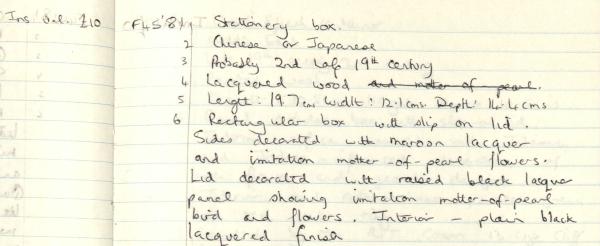 Ins Val. £10 F45'81 Stationery box.
2 Chinese or Japanese
3 Probably 2nd half 19th century
4 Lacquered wood and mother-of-pearl.
5 Length: 19.7cm Width: 12.1cms. Depth: 14.4cms
6 Rectangular box with slip on lid.
Sides decorated with maroon lacquer
and imitation mother-of-pearl flowers.
Lid decorated with raised black lacquer
panel showing imitation mother-of-pearl
bird and flowers. Interior - plain black
lacquered finish